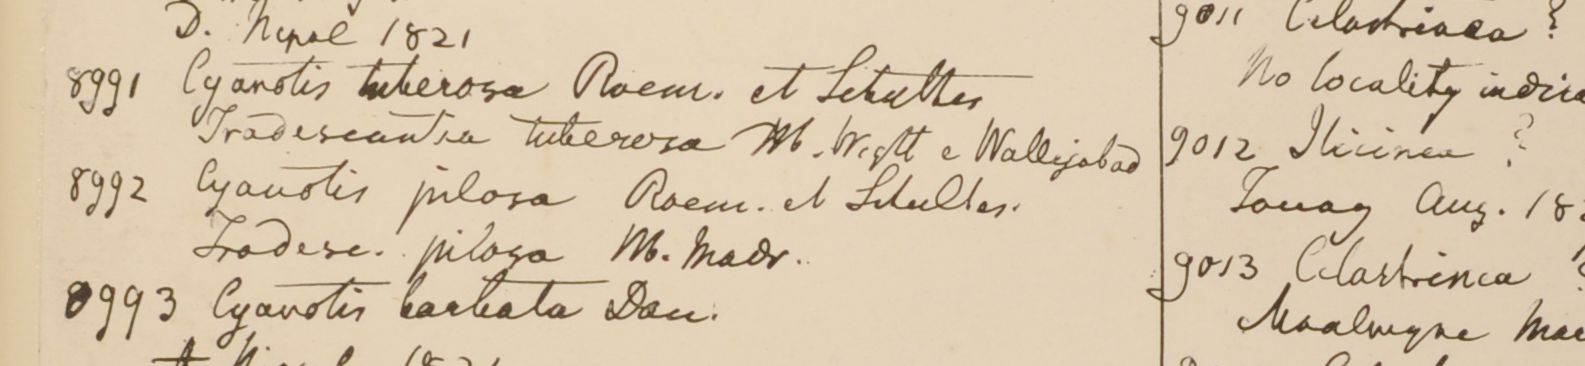 D. Nepal 1821
8991 Cyanotis tuberosa Roem. et Schultes
Tradescantia tuberosa Hb. Wight e Wallijabad
8992 Cyanotis pilosa Roem. et Schultes.
Tradesc. pilosa Hb. Madr.
8993 Cyanotis barbata Don.
9011 Celastrinea ?
No locality indica
9012 Ilicinea ?
Touay Aug. 18
9013 Celastrinea ?